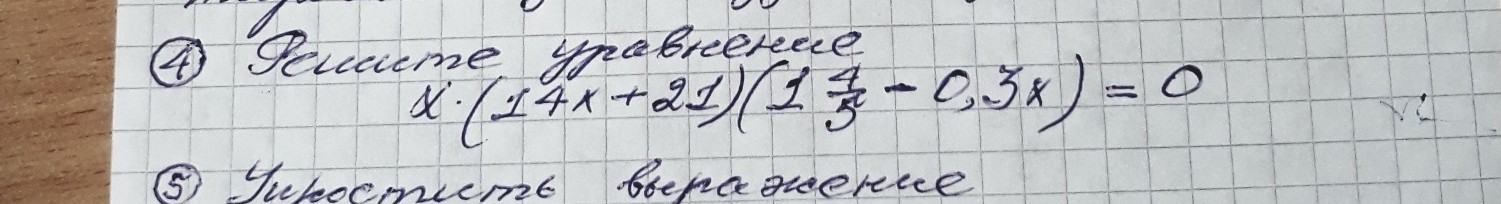 ④ Решите уравнение
x·(14x+21)(1 4/5 - 0,3x) = 0
⑤ Упростить выражение